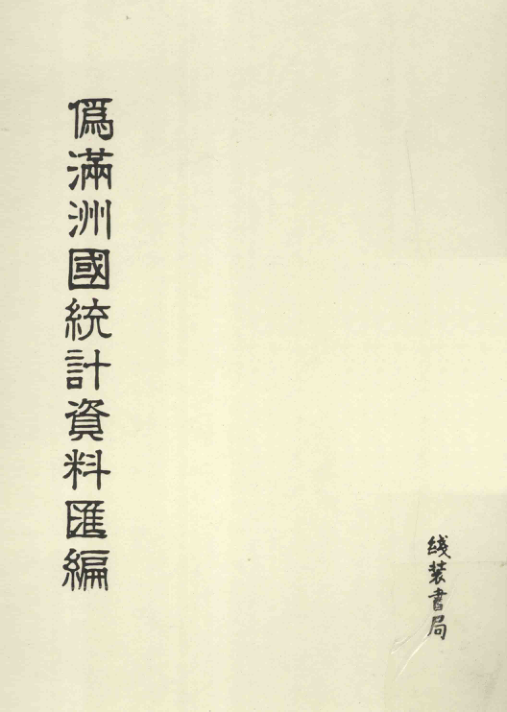 偽滿洲國統計資料匯編
线装書局